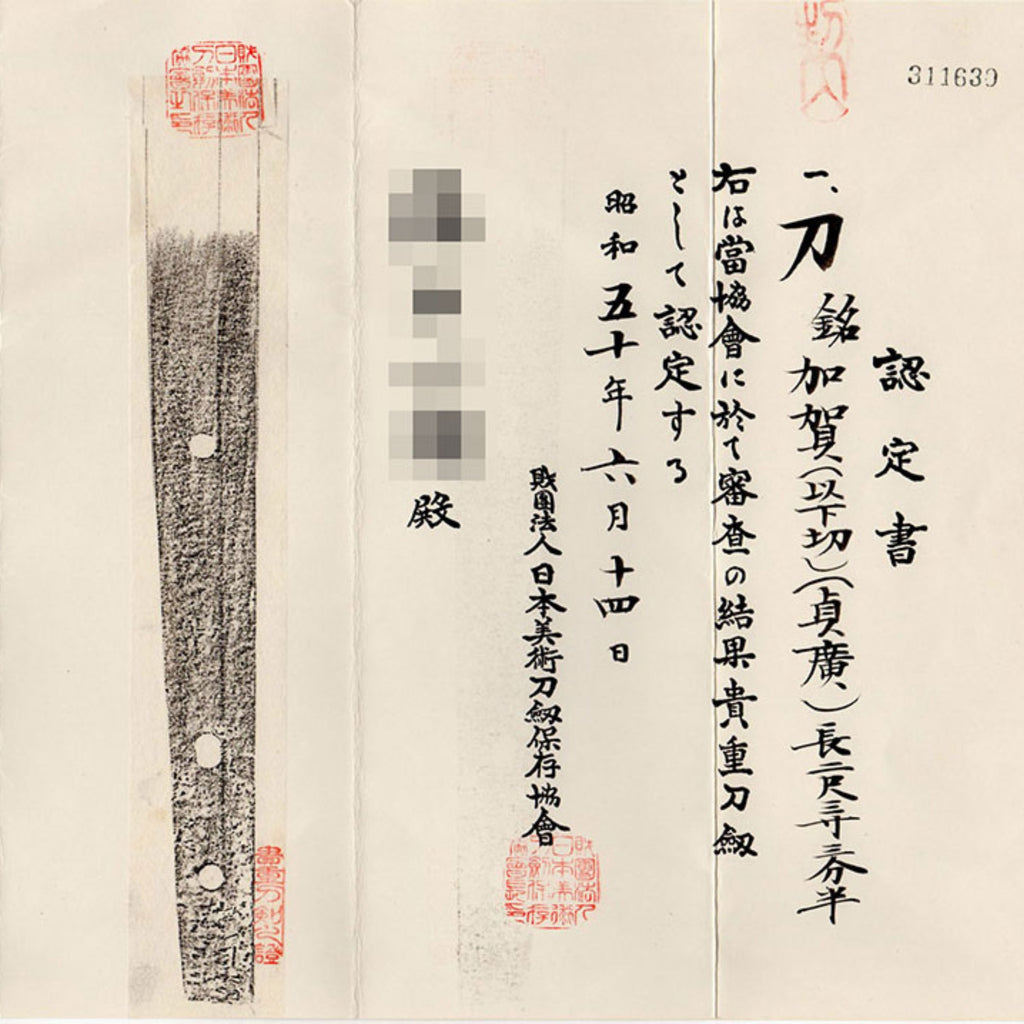 311630
認定書
一、刀 銘 加賀(以下切)(貞廣、)長二尺三寸三分半
右は當協會に於て審査の結果貴重刀劔
として認定する
昭和五十年六月十四日
財團法人日本美術刀劔保存協會
殿